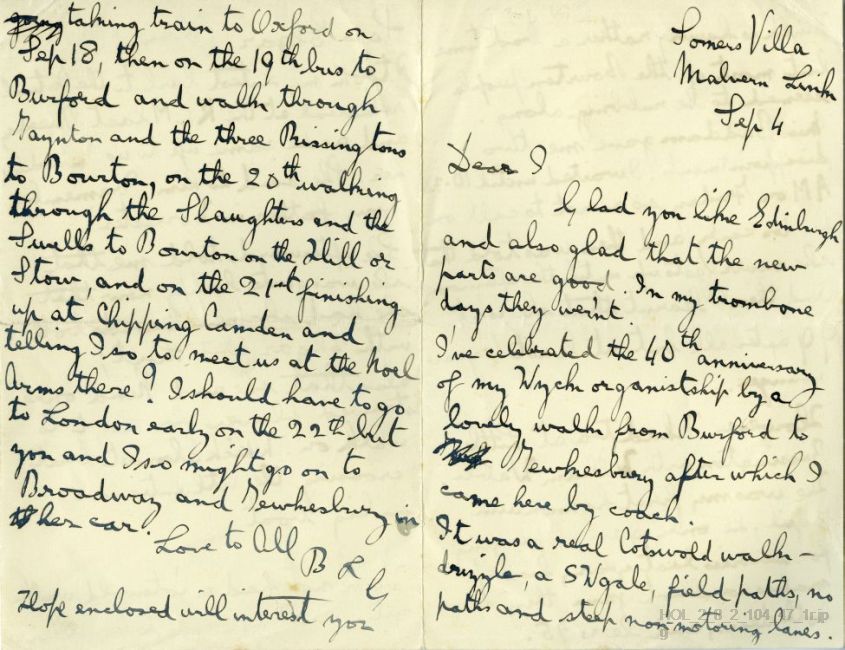 Somers Villa
Malvern Link
Sep 4
Dear I
Glad you like Edinburgh
and also glad that the new
parts are good. In my trombone
days they weint.
I've celebrated the 40th anniversary
of my Wych organistship by a
lovely walk from Burford to
Tewkesbury after which I
came here by coach.
It was a real Cotswold walk –
drizzle, a SW gale, field paths, no
paths and steep non-motoring lanes.
going taking train to Oxford on
Sep 18, then on the 19th bus to
Burford and walk through
Taynton and the three Rissingtons
to Bourton, on the 20th walking
through the Slaughters and the
Swells to Bourton on the Hill or
Stow, and on the 21st finishing
up at Chipping Camden and
telling Iso to meet us at the Noel
Arms there? I should have to go
to London early on the 22th but
you and Iso might go on to
Broadway and Tewkesbury in
her car.
Love to All
B L G
Hope enclosed will interest you